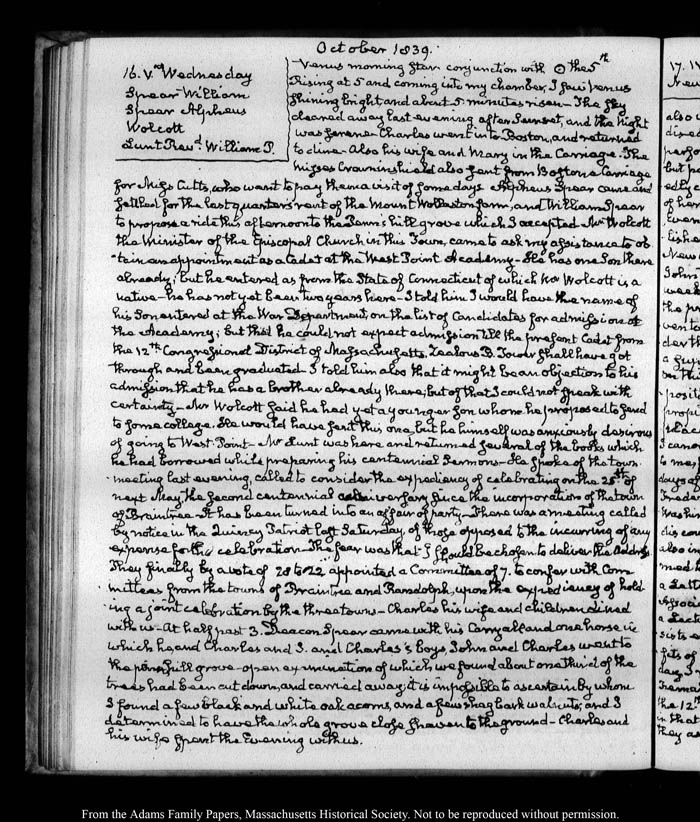 October 1839.
16. V. Wednesday
Spear William
Spear Alpheus
Wolcott
Lunt Revd. William P.
Venus morning Star. conjunction with ☉ the 5th
Rising at 5 and coming into my chamber, I saw Venus
shining bright and about 5 minutes risen – The sky
cleared away last evening after Sunset, and the night
was serene – Charles went into Boston, and returned
to dine – Also his wife and Mary in the Carriage. The
Misses Crowninshield also sent from Boston a Carriage
for Miss Cutts, who went to pay them a visit of some days – Alpheus Spear came and
settled for the last quarters rent of the Mount Wollaston farm, and William Spear
to propose a ride this afternoon to the Penn's hill grove which I accepted – Mr Wolcott
the Minister of the Episcopal Church in this Town, came to ask my assistance to ob-
tain an appointment as a Cadet at the West Point Academy – He has one Son there
already; but he entered as from the State of Connecticut of which Mr Wolcott is a
native – he has not yet been two years here – I told him I would have the name of
his Son entered at the War Department, on the list of Candidates for admission at
the Academy; but that he could not expect admission till the present Cadet from
the 12th Congressional District of Massachusetts, Zealous B. Tower shall have got
through and been graduated – I told him also that it might be an objection to his
admission that he has a brother already there; but of that I could not speak with
certainty – Mr Wolcott said he had yet a younger son whom he proposed to send
to some college. He would have sent this one, but he himself was anxiously desirous
of going to West-Point – Mr Lunt was here and returned several of the books which
he had borrowed while preparing his centennial Sermons – He spoke of the town-
meeting last evening, called to consider the expediency of celebrating on the 25th of
next May the second centennial anniversary since the incorporation of the town
of Braintree – It has been turned into an affair of party – There was a meeting called
by notice in the Quincy Patriot last Saturday, of those opposed to the incurring of any
expense for the celebration – The fear was that I should be chosen to deliver the Address
They finally by a vote of 28 to 22 appointed a Committee of 7. to confer with Com-
mittees from the towns of Braintree and Randolph, upon the expediency of hold-
ing a joint celebration by the three towns – Charles his wife and children dined
with us – At half past 3. Deacon Spear came with his Carryall and one horse in
which he, and Charles and I. and Charles's boys, John and Charles went to
the penn's hill grove – upon examination of which we found about one third of the
trees had been cut down, and carried away; it is impossible to ascertain by whom
I found a few black and white oak acorns, and a few shagbark walnuts; and I
determined to have the whole grove close shaven to the ground – Charles and
his wife spent the Evening with us.
From the Adams Family Papers, Massachusetts Historical Society. Not to be reproduced without permission.